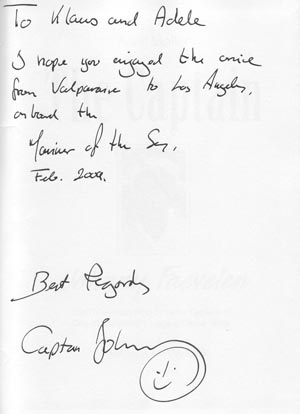 To Klaus and Adele
I hope you enjoyed the cruise
from Valparaiso to Los Angeles,
onboard the
Mariner of the Seas,
Feb. 2009.
Best Regards
Captain Johnny